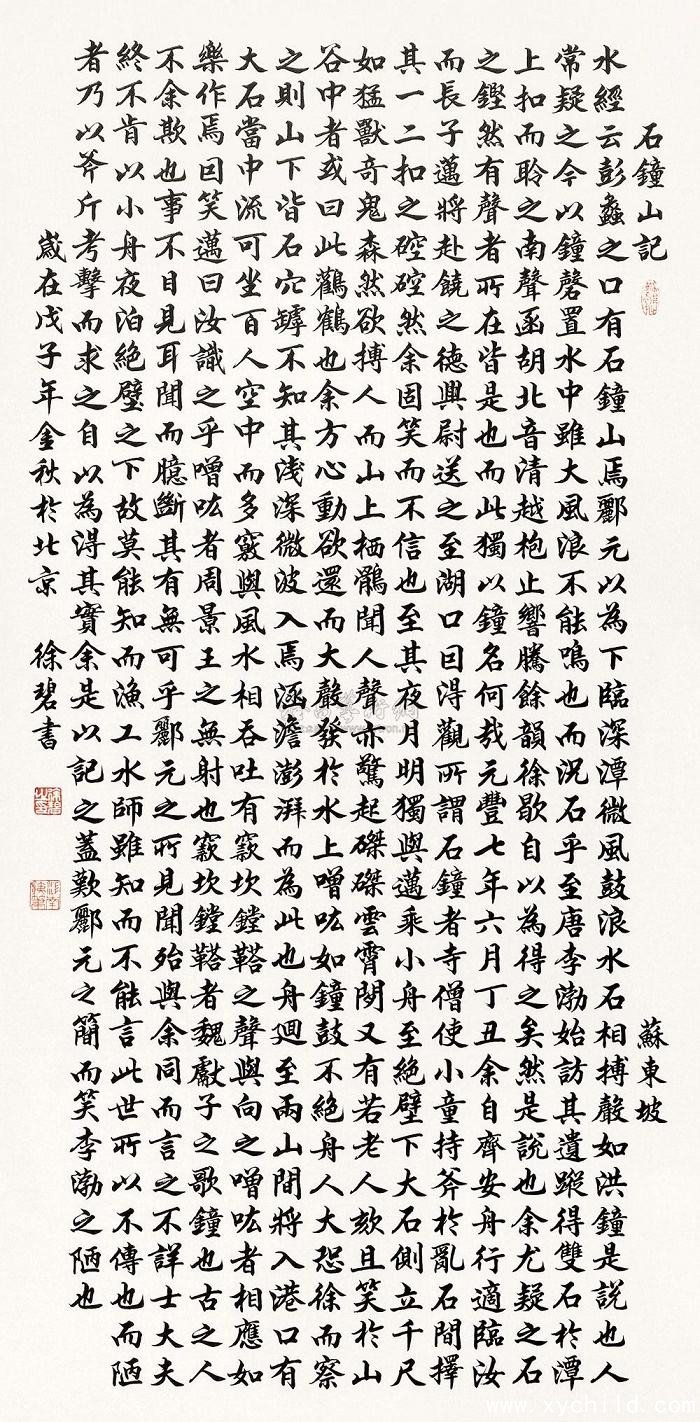 石鐘山記 蘇東坡
水經云彭蠡之口有石鐘山焉酈元以為下臨深潭微風鼓浪水石相搏聲如洪鐘是說也人
常疑之今以鐘磬置水中雖大風浪不能鳴也而況石乎至唐李渤始訪其遺蹤得雙石於潭
上扣而聆之南聲函胡北音清越枹止響騰餘韻徐歇自以為得之矣然是說也余尤疑之石
之鏗然有聲者所在皆是也而此獨以鐘名何哉元豐七年六月丁丑余自齊安舟行適臨汝
而長子邁將赴饒之德興尉送之至湖口因得觀所謂石鐘者寺僧使小童持斧於亂石間擇
其一二扣之硿硿然余固笑而不信也至其夜月明獨與邁乘小舟至絕壁下大石側立千尺
如猛獸奇鬼森然欲搏人而山上栖鶻聞人聲亦驚起磔磔雲霄間又有若老人欬且笑於山
谷中者或曰此鸛鶴也余方心動欲還而大聲發於水上噌吰如鐘鼓不絕舟人大恐徐而察
之則山下皆石穴罅不知其淺深微波入焉涵澹澎湃而為此也舟迴至兩山間將入港口有
大石當中流可坐百人空中而多竅與風水相吞吐有窾坎鏜鞳之聲與向之噌吰者相應如
樂作焉因笑邁曰汝識之乎噌吰者周景王之無射也窾坎鏜鞳者魏獻子之歌鐘也古之人
不余欺也事不目見耳聞而臆斷其有無可乎酈元之所見聞殆與余同而言之不詳士大夫
終不肯以小舟夜泊絕壁之下故莫能知而漁工水師雖知而不能言此世所以不傳也而陋
者乃以斧斤考擊而求之自以為得其實余是以記之蓋歎酈元之簡而笑李渤之陋也
歲在戊子年金秋於北京 徐碧書
www.xychild.com